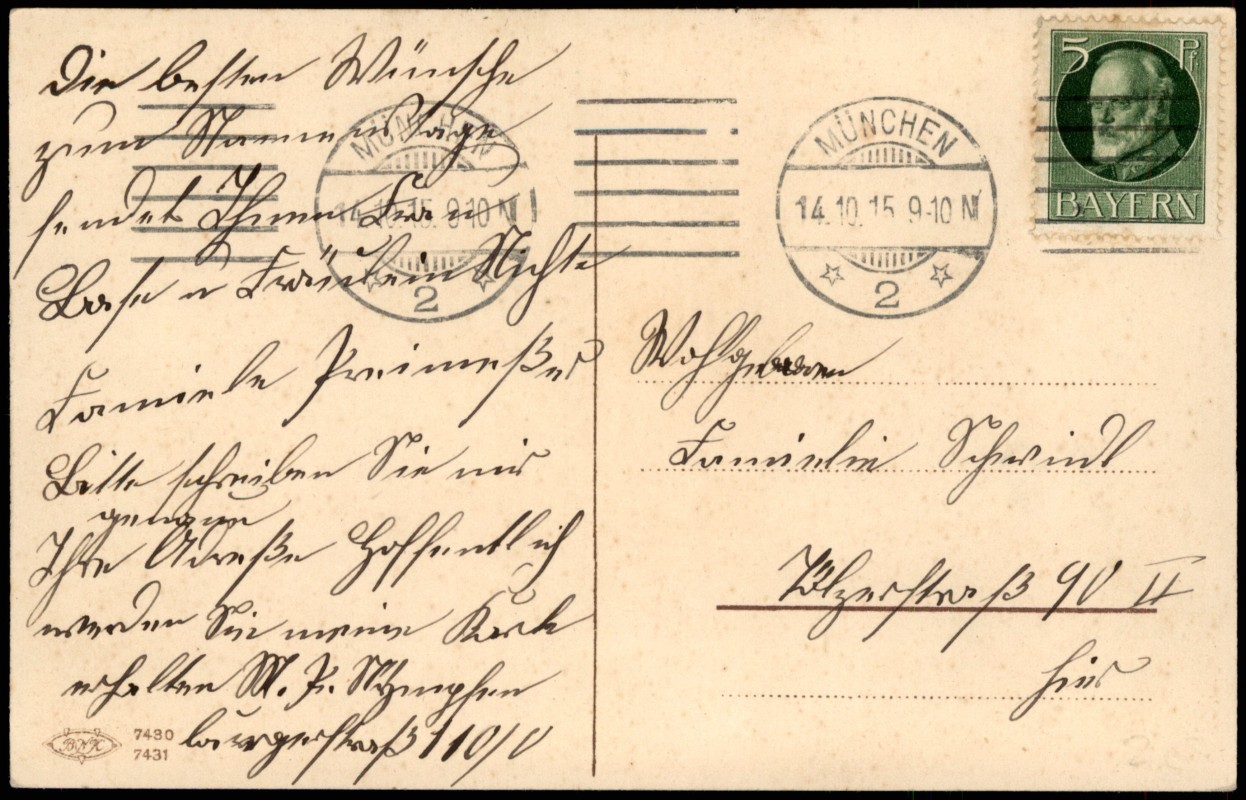 Die besten Wünsche
zum Namenstage
sendet Ihnen Frau
Base u Fräulein Nichte
Familie
Bitte schreiben Sie mir
genaue
Ihre Adreße Hoffentlich
werden Sie meine Karte
erhalten M. P. Nymphen
burgerstraß 110/0
BNK
7430
7431
MÜNCHEN
14.10.15. 9-10 N
2
MÜNCHEN
14.10.15 9-10 N
2
5 Pf
BAYERN
Wohlgeboren
Familie Schwindl
Tölzerstraß 90 II
hier